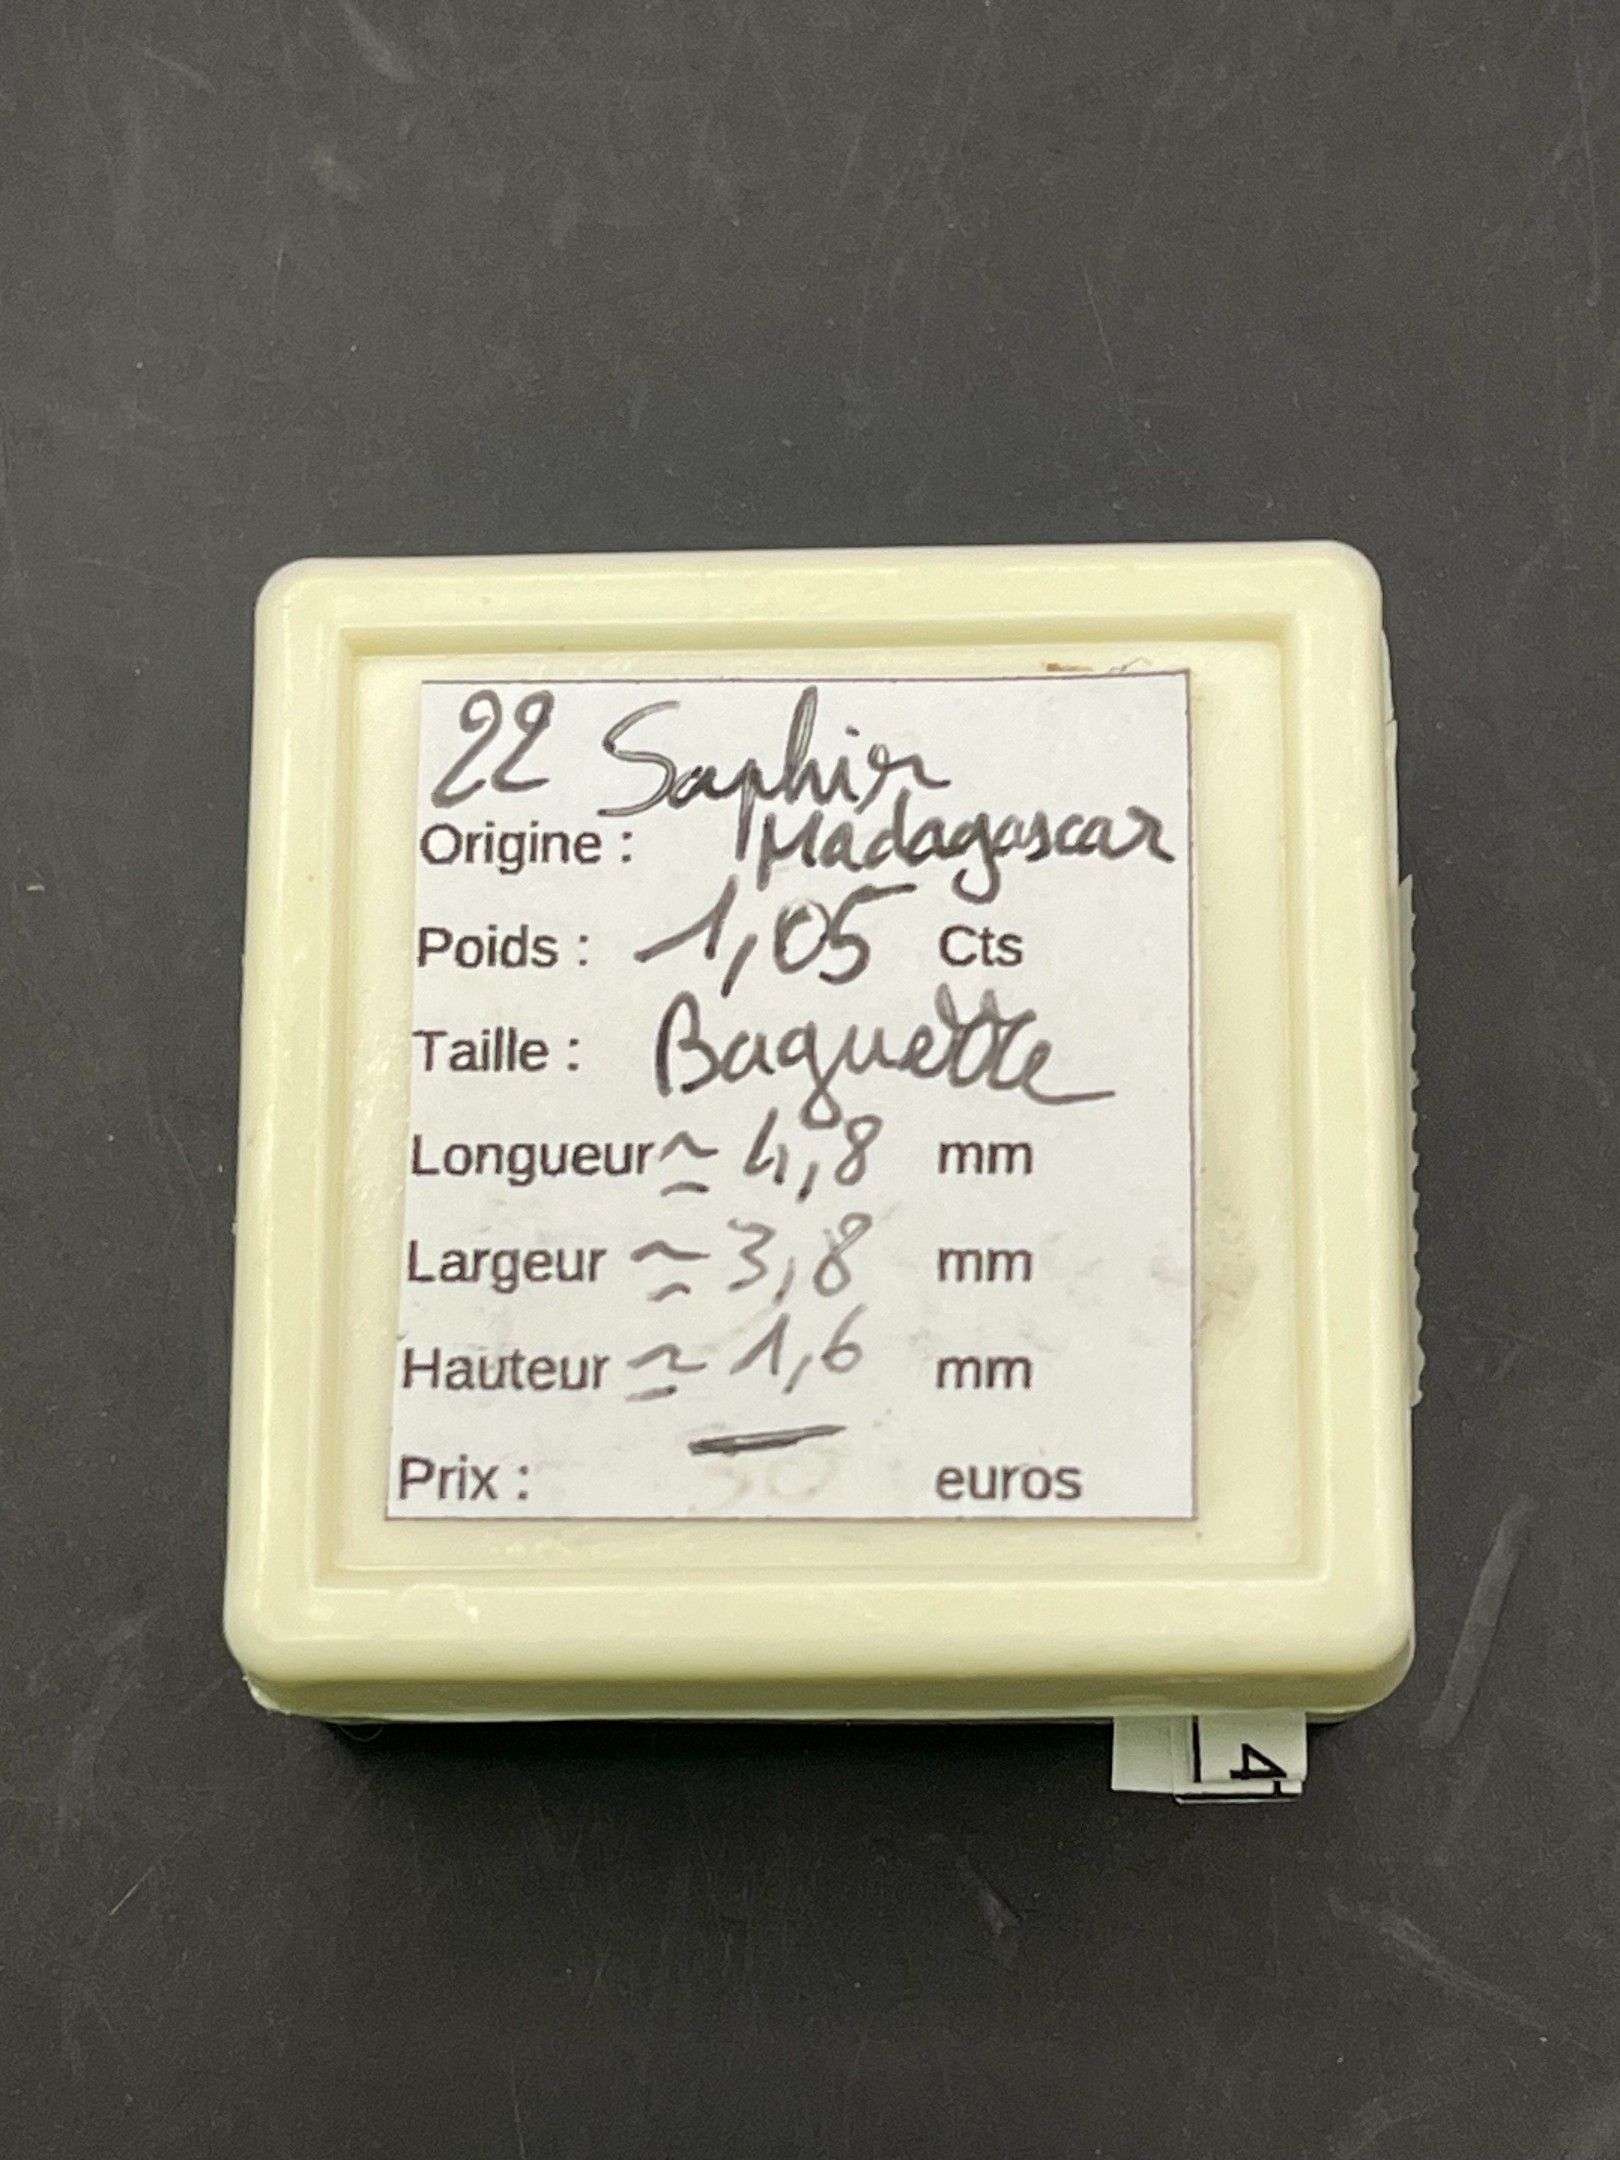 22 Saphir
Origine : Madagascar
Poids : 1,05 Cts
Taille : Baguette
Longueur ≃ 4,8 mm
Largeur ≃ 3,8 mm
Hauteur ≃ 1,6 mm
Prix : euros
4